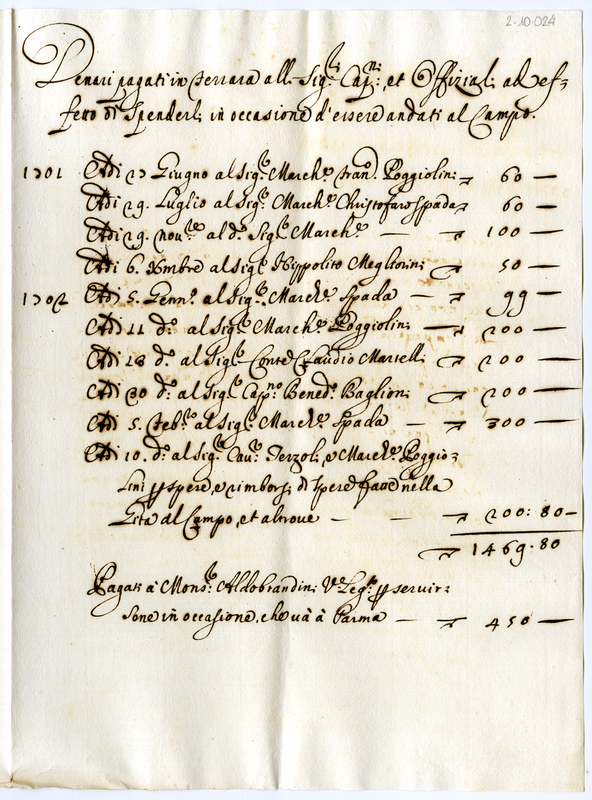 2-10-024
Denari pagati in Ferrara alli Sig.ri Cap.ni, et Offiziali ad ef=
fetto di Spenderli in occasione d'essere andati al Campo.
1701 Adi 23 Giugno al Sig.r March.e Fran.o Poggiolini 60 —
Adi 29. Luglio al Sig.r March.e Christofaro Spada 60 —
Adi 29. nou.re al d.o Sig.r March.e — 100 —
Adi 6. Xmbre al Sig.r Hippolito Megliorini 50 —
1702 Adi 5. Genn.o al Sig.r March.e Spada — 99 —
Adi 11 d.o al Sig.r March.e Poggiolini — 200 —
Adi 28 d.o al Sig.r Conte Claudio Martelli 200 —
Adi 30 d.o al Sig.r Cap.no Bened.o Baglioni 200 —
Adi 5. Feb.o al Sig.r March.e Spada — 300 —
Adi 10. d.o al Sig.r Cau.r Terzoli, e March.e Poggio=
lini spese, e rimborsi di spese fatte nella
Gita al Campo, et altroue — — 200: 80 —
1469: 80
Pagati à Mons.r Aldobrandini V.e Leg.o seruir=
sene in occasione, che uà à Parma — 450 —